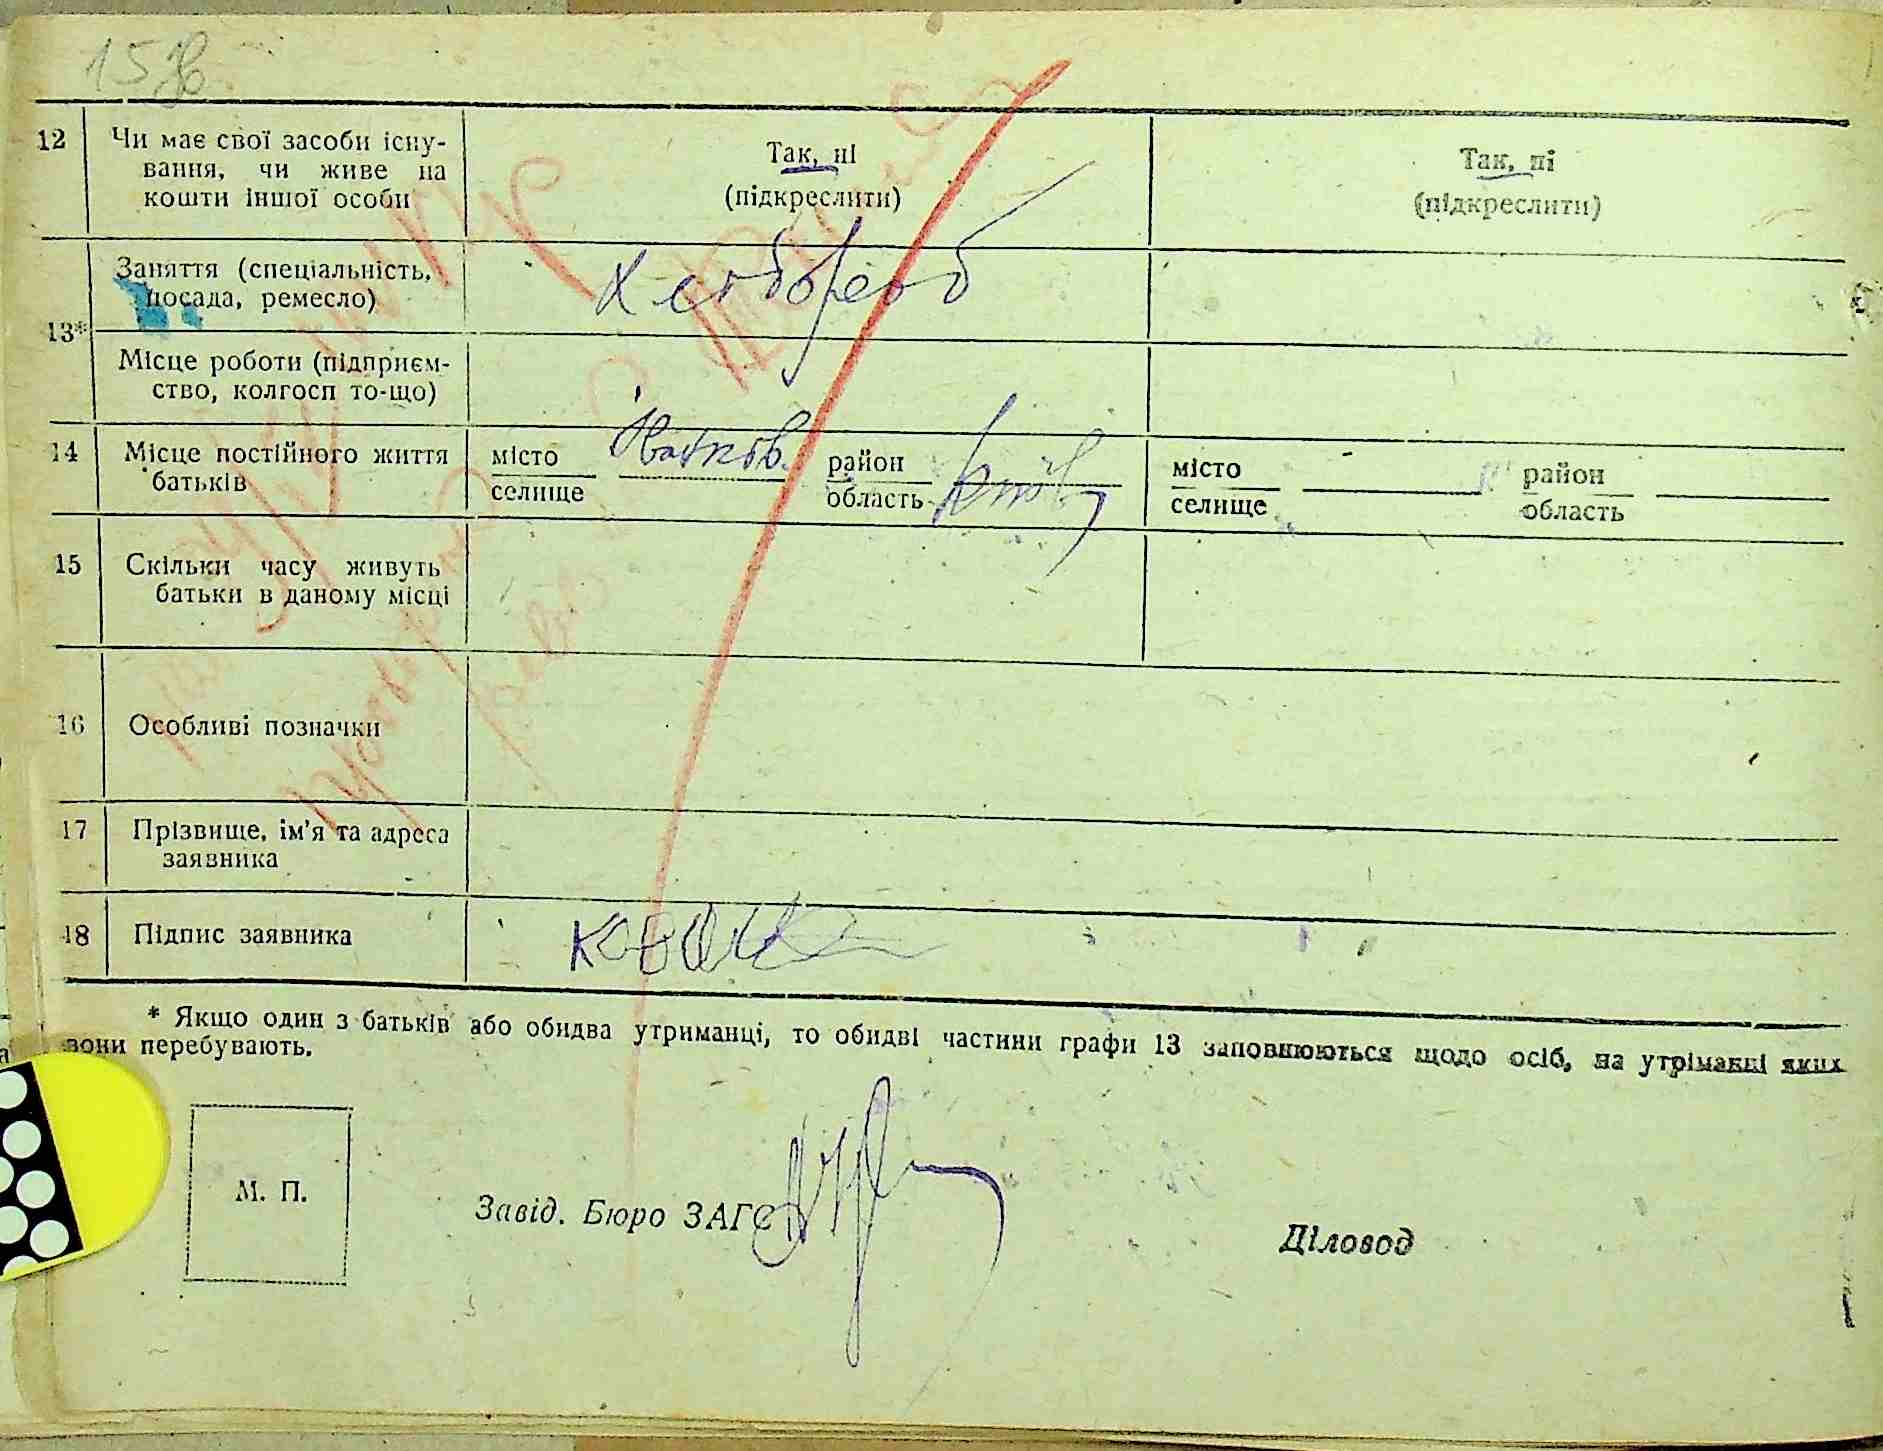 15
12 Чи має свої засоби існу-
вання, чи живе на
кошти іншої особи
Так, ні
(підкреслити)
Так, ні
(підкреслити)
13*
Заняття (спеціальність,
посада, ремесло)
Хлібороб
Місце роботи (підприєм-
ство, колгосп то-що)
14 Місце постійного життя
батьків
місто
селище
район
область
місто
селище
район
область
15 Скільки часу живуть
батьки в даному місці
16 Особливі позначки
17 Прізвище, ім'я та адреса
заявника
18 Підпис заявника
* Якщо один з батьків або обидва утриманці, то обидві частини графи 13 заповнюються щодо осіб, на утріманні яких
вони перебувають.
М. П.
Завід. Бюро ЗАГС
Діловод